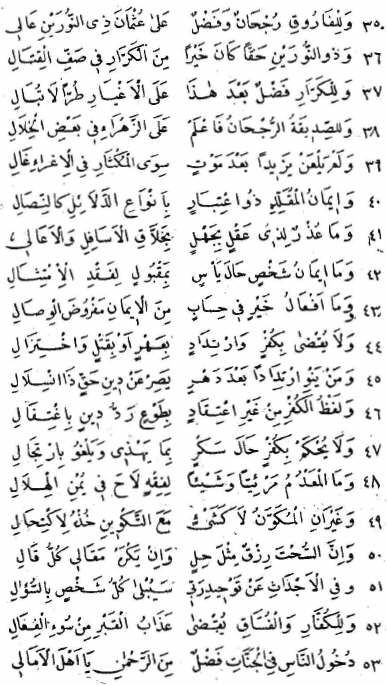 ٣٥ وَلِلْفَارُوقِ رُجْحَانٌ وَفَضْلٌ عَلَى عُثْمَانَ ذِى النُّورَيْنِ عَالِى
٣٦ وَذُو النُّورَيْنِ حَقًّا كَانَ خَيْرًا مِنَ الْكَرَّارِ فِى صَفِّ الْقِتَالِ
٣٧ وَلِلْكَرَّارِ فَضْلٌ بَعْدَ هٰذَا عَلَى الْاَغْيَارِ طُرًّا لَا تُبَالِ
٣٨ وَلِلصِّدِّيقَةِ الرُّجْحَانُ فَاعْلَمْ عَلَى الزَّهْرَاءِ فِى بَعْضِ الْخِلَالِ
٣٩ وَلَمْ يَلْعَنْ يَزِيدًا بَعْدَ مَوْتٍ سِوَى الْمِكْثَارِ فِى الْاِغْرَاءِ غَالِ
٤٠ وَاِيمَانُ الْمُقَلِّدِ ذُو اعْتِبَارٍ بِاَنْوَاعِ الدَّلَائِلِ كَالنِّصَالِ
٤١ وَمَا عُذْرٌ لِذِى عَقْلٍ بِجَهْلٍ بِخَلَّاقِ الْاَسَافِلِ وَالْاَعَالِى
٤٢ وَمَا اِيمَانُ شَخْصٍ حَالَ يَاْسٍ بِمَقْبُولٍ لِفَقْدِ الْاِمْتِثَالِ
٤٣ وَمَا اَفْعَالُ خَيْرٍ فِى حِسَابٍ مِنَ الْاِيمَانِ مَفْرُوضَ الْوِصَالِ
٤٤ وَلَا يُقْضٰى بِكُفْرٍ وَارْتِدَادٍ بِعَهْرٍ اَوْ بِقَتْلٍ وَاخْتِزَالِ
٤٥ وَمَنْ يَنْوِ ارْتِدَادًا بَعْدَ دَهْرٍ يَصِرْ عَنْ دِينِ حَقٍّ ذَا انْسِلَالِ
٤٦ وَلَفْظُ الْكُفْرِ مِنْ غَيْرِ اعْتِقَادٍ بِطَوْعٍ رَدُّ دِينٍ بِاغْتِفَالِ
٤٧ وَلَا يُحْكَمْ بِكُفْرٍ حَالَ سَكْرٍ بِمَا يَهْذِى وَيَلْغُو بِارْتِجَالِ
٤٨ وَمَا الْمَعْدُومُ مَرْئِيًّا وَشَيْئًا لِفِقْهٍ لَاحَ فِى يُمْنِ الْهِلَالِ
٤٩ وَغَيْرَانِ الْمُكَوَّنُ لَا كَشَىْءٍ مَعَ التَّكْوِينِ خُذْهُ لِاكْتِحَالِ
٥٠ وَاِنَّ السُّحْتَ رِزْقٌ مِثْلَ حِلٍّ وَاِنْ يَكْرَهْ مَقَالِى كُلُّ قَالِ
٥١ وَفِى الْاَجْدَاثِ عَنْ تَوْحِيدِ رَبِّى سَيُبْلٰى كُلُّ شَخْصٍ بِالسُّؤَالِ
٥٢ وَلِلْكُفَّارِ وَالْفُسَّاقِ يُقْضٰى عَذَابُ الْقَبْرِ مِنْ سُوءِ الْفِعَالِ
٥٣ دُخُولُ النَّاسِ فِى الْجَنَّاتِ فَضْلٌ مِنَ الرَّحْمٰنِ يَا اَهْلَ الْاَمَالِى